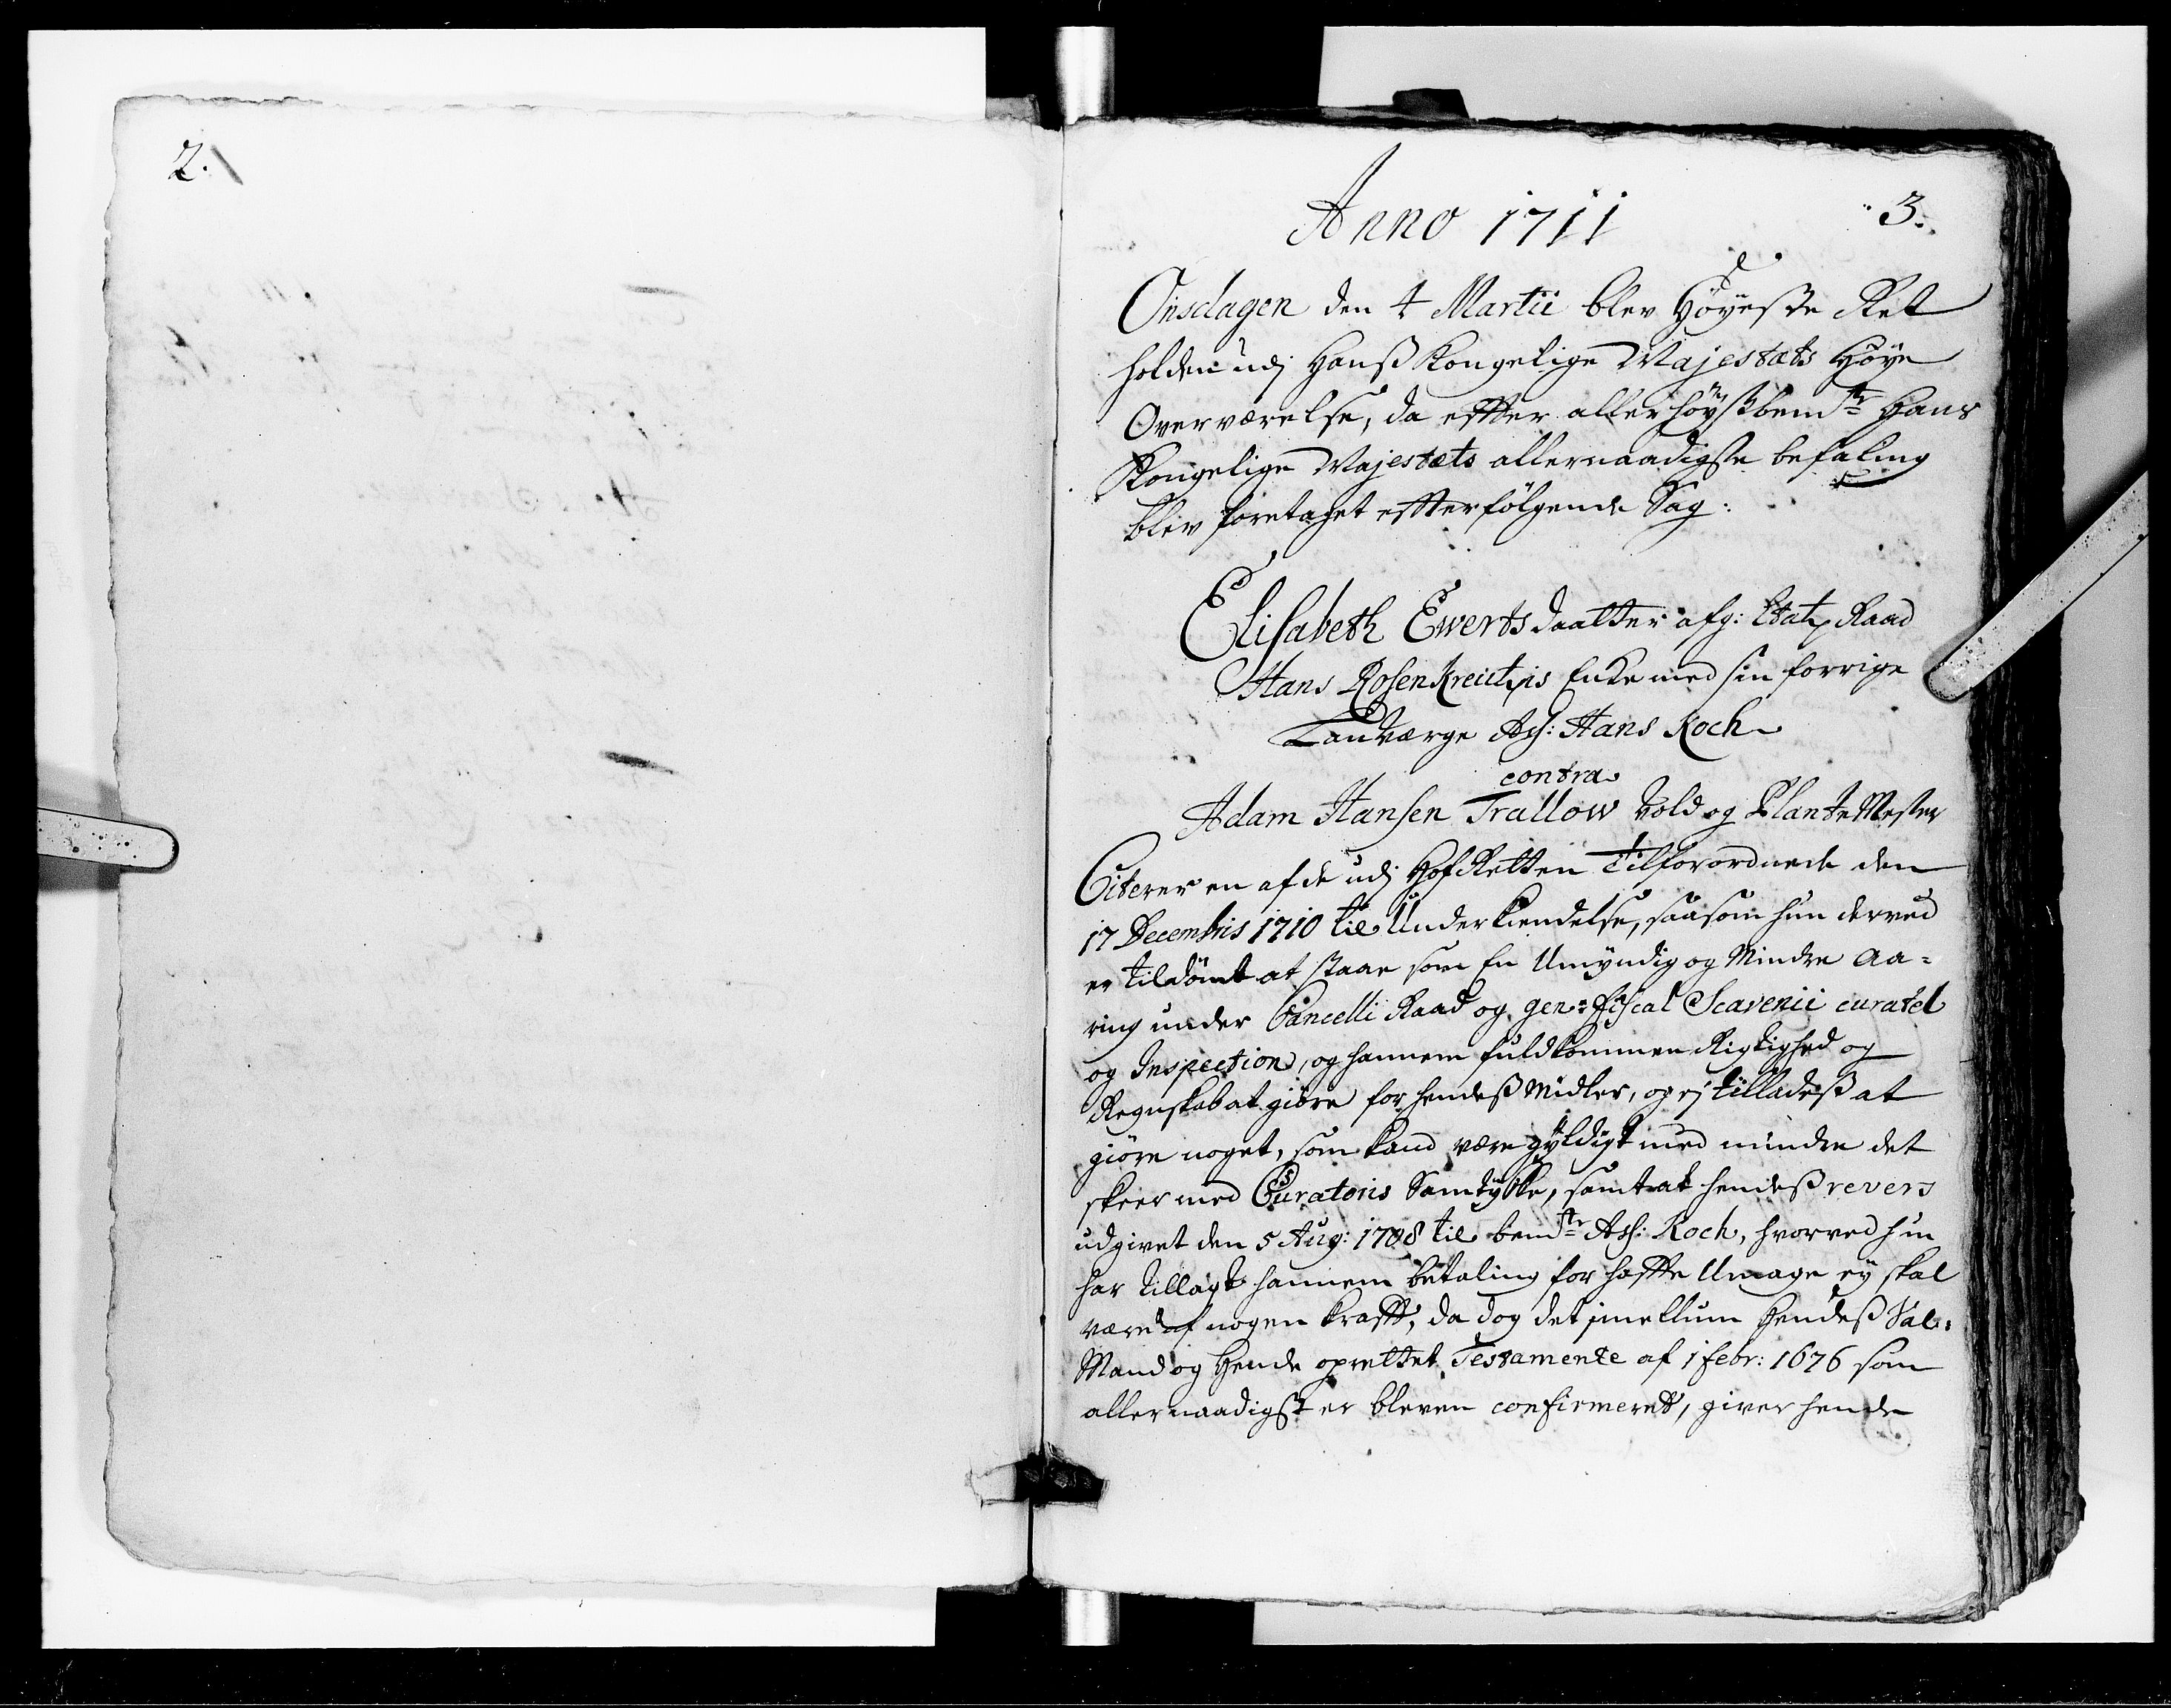 2.
Anno 1711
3.
Onsdagen den 4 Martii blev Høyeste Ret
holden udj Hanß Kongelige Majestæts Høye
Overværelse, da effter allerhøystbemte Hans
Kongelige Majestæts allernaadigste befaling
blev foretaget effterfølgende Sag:
Elisabeth Ewertsdaatter afg: Etatz Raad
Hans Rosenkreutzis Enke med sin forrige
Lauværge Ass: Hans Koch
contra
Adam Hansen Trallow Vold og Plante Mester
Citerer en af de udj HofRetten Tilforordnede den
17 Decembris 1710 til Underkiendelse, saasom hun derved
er tildømt at staae som En Umyndig og Mindre Aa=
ring under Cancelli Raad og gen: Fiscal Scavenii curatel
og Inspection, og hannem fuldkommen Rigtighed og
Regnskab at giøre for hendeß Midler, og ej tilladeß at
giøre noget, som kand være gyldigt med mindre det
skeer med Curatoris Samtykke, samt at hendeß revers
udgivet den 5 Aug: 1708 til bemte Ass: Koch, hvorved hun
har tillagt hannem betaling for hafte Umage ey skal
være af nogen krafft, da dog det imellum Hendeß Sal:
Mand og Hende oprettet Testamente af 1 febr: 1676 som
allernaadigst er bleven confirmeret, giver hende